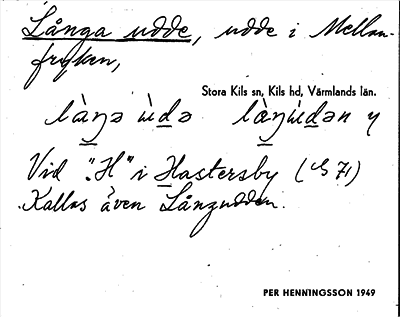 Långa udde, udde i Mellan-
fryken,
Stora Kils sn, Kils hd, Värmlands län.
Vid "H" i Hastersby (
Kallas även Långudden.
PER HENNINGSSON 1949